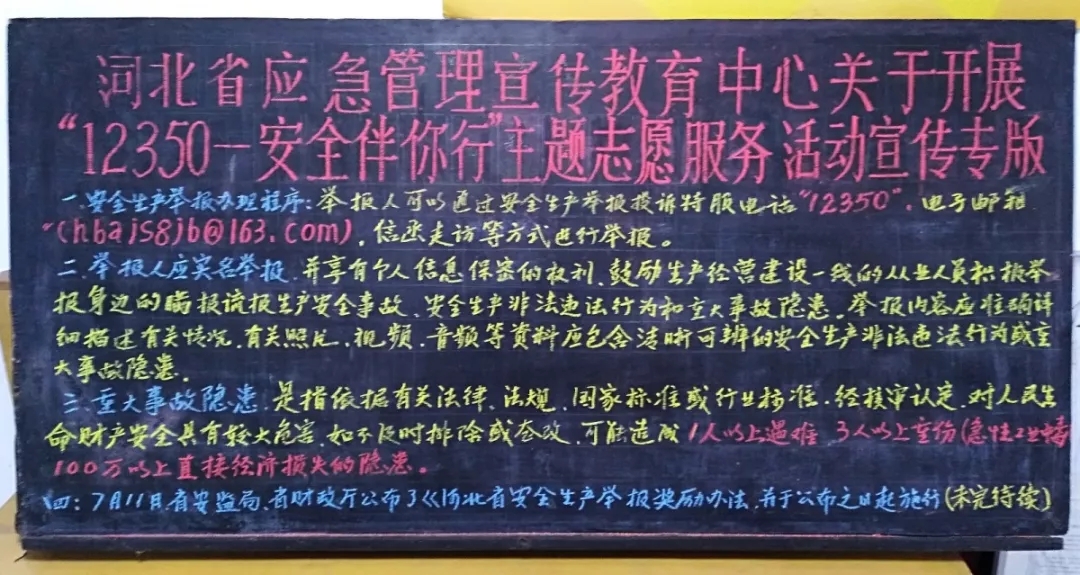 河北省应急管理宣传教育中心关于开展
“12350一安全伴你行”主题志愿服务活动宣传专版
一.安全生产举报办理程序:举报人可以通过安全生产举报投诉特服电话“12350”.电子邮箱
(chbajs8jb@163.com),信函走访等方式进行举报。
二.举报人应实名举报.并享有个人信息保密的权利.鼓励生产经营建设一线的从业人员积极举
报身边的瞒报谎报生产安全事故、安全生产非法违法行为和重大事故隐患.举报内容应准确详
细描述有关情况.有关照片.视频.音频等资料应包含清晰可辨的安全生产非法违法行为或重
大事故隐患.
三.重大事故隐患.是指依据有关法律、法规、国家标准或行业标准.经核审认定.对人民生
命财产安全具有较大危害.如不及时排除或整改.可能造成1人以上遇难.3人以上重伤(急性工业中毒
100万以上直接经济损失的隐患。
四:7月11日.省安监局.省财政厅公布了《河北省安全生产举报奖励办法.并于公布之日起施行(未完待续)